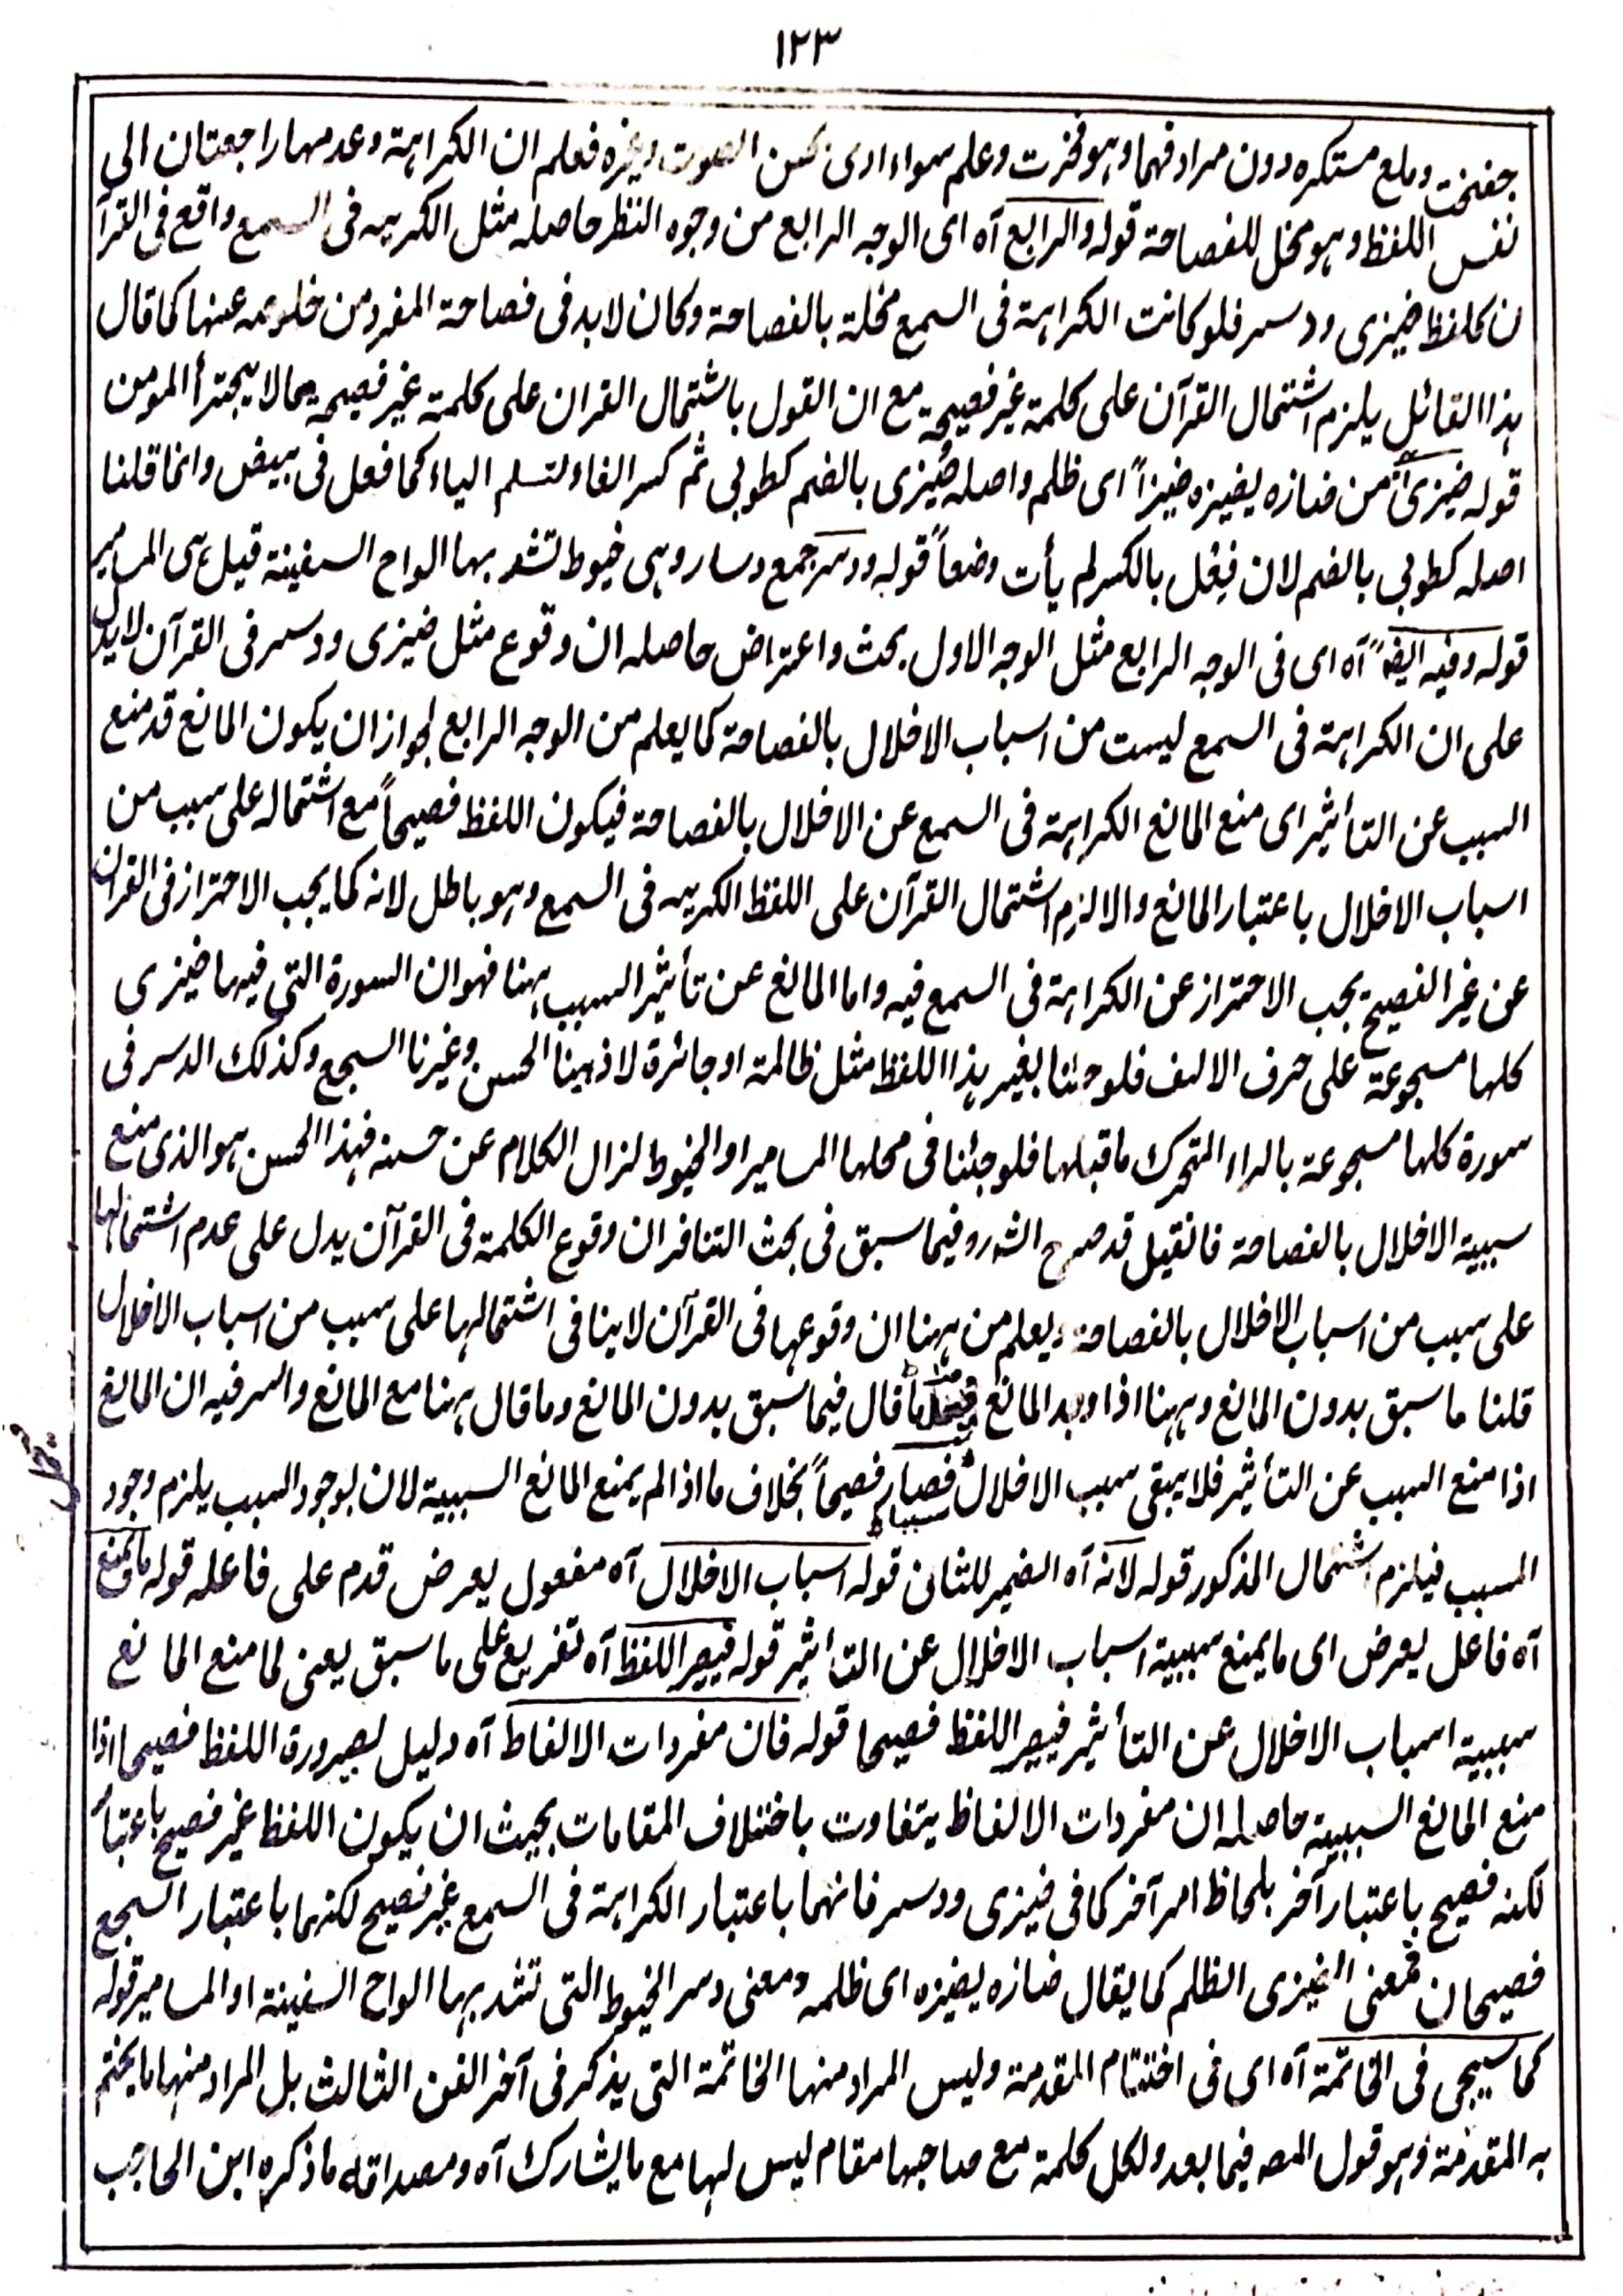 ١٢٣
جفخت وملع مستكره دون مرادفهما وهو فخرت وعلم سواء ادى بحسن الصوت وغيره فعلم ان الكراهة وعدمها راجعتان الى
نفس اللفظ وهو مخل للفصاحة قوله والرابع آه اى الوجه الرابع من وجوه النظر حاصله مثل الكريه فى السمع واقع فى القرآ
ن كلفظ ضيزى ودسر فلو كانت الكراهة فى السمع مخلة بالفصاحة وكان لابد فى فصاحة المفرد من خلوصه عنها كما قال
هذا القائل يلزم اشتمال القرآن على كلمة غير فصيحة مع ان القول باشتمال القران على كلمة غير فصيحة مما لا يجترأ المومن
قوله ضيزى آه من ضازه يضيزه ضيزاً اى ظلم واصله ضُيزى بالضم كطوبى ثم كسر الفاء لتسلم الياء كما فعل فى بيض وانما قلنا
اصله كطوبى بالضم لان فِعْلى بالكسر لم يأت وضعاً قوله ودسر جمع دسار وهى خيوط تشد بها الواح السفينة قيل هى المسامير
قوله وفيه ايضاً آه اى فى الوجه الرابع مثل الوجه الاول بحث واعتراض حاصله ان وقوع مثل ضيزى ودسر فى القرآن لا يدل
على ان الكراهة فى السمع ليست من اسباب الاخلال بالفصاحة كما يعلم من الوجه الرابع لجواز ان يكون المانع قد منع
السبب عن التأثير اى منع المانع الكراهة فى السمع عن الاخلال بالفصاحة فيكون اللفظ فصيحاً مع اشتماله على سبب من
اسباب الاخلال باعتبار المانع والا لزم اشتمال القرآن على اللفظ الكريه فى السمع وهو باطل لانه كما يجب الاحتراز فى القران
عن غير الفصيح يجب الاحتراز عن الكراهة فى السمع فيه واما المانع عن تأثير السبب ههنا فهو ان السورة التى فيها ضيزى
كلها مسجوعة على حرف الالف فلو جئنا بغير هذا اللفظ مثل ظالمة او جائرة لاذهبنا الحسن وغيرنا السجع وكذلك الدسر فى
سورة كلها مسجوعة بالراء المتحرك ماقبلها فلو جئنا فى محلها المسامير او الخيوط لزال الكلام عن حسنه فهذا الحسن هو الذى منع
سببية الاخلال بالفصاحة فانقيل قد صرح الش‍ رو فيما سبق فى بحث التنافر ان وقوع الكلمة فى القرآن يدل على عدم اشتمالها
على سبب من اسباب الاخلال بالفصاحة ويعلم من ههنا ان وقوعها فى القرآن لا ينافى اشتمالها على سبب من اسباب الاخلال
قلنا ما سبق بدون المانع وههنا اذا وجد المانع ما قال فيما سبق بدون المانع وما قال ههنا مع المانع والسر فيه ان المانع
اذا منع السبب عن التأثير فلا يبقى سبب الاخلال سببا فصار فصيحاً بخلاف ما اذا لم يمنع المانع السببية لان بوجود السبب يلزم وجود
المسبب فيلزم اشتمال المذكور قوله لانه آه الضمير للشان قوله اسباب الاخلال آه مفعول يعرض قدم على فاعله قوله ما يمنع
آه فاعل يعرض اى ما يمنع سببية اسباب الاخلال عن التأثير قوله فيصير اللفظ آه تفريع على ما سبق يعنى لما منع المانع
سببية اسباب الاخلال عن التأثير فيصير اللفظ فصيحا قوله فان مفردات الالفاظ آه دليل لصيرورة اللفظ فصيحا اذا
منع المانع السببية حاصله ان مفردات الالفاظ يتفاوت باختلاف المقامات بحيث ان يكون اللفظ غير فصيح باعتبار
لكنه فصيح باعتبار آخر بلحاظ امر آخر كما فى ضيزى ودسر فانهما باعتبار الكراهة فى السمع غير فصيح لكنهما باعتبار السجع
فصيحان فمعنى الضيزى الظلم كما يقال ضازه يضيزه اى ظلمه ومعنى دسر الخيوط التى تشد بها الواح السفينة او المسامير قوله
كما سيجى فى الخاتمة آه اى فى اختتام المقدمة وليس المراد منها الخاتمة التى يذكر فى آخر الفن الثالث بل المراد منها ما يختم
به المقدمة وهو قول المص فيما بعد ولكل كلمة مع صاحبها مقام ليس لها مع ما يشارك آه ومصداقه ما ذكره ابن الحاجب